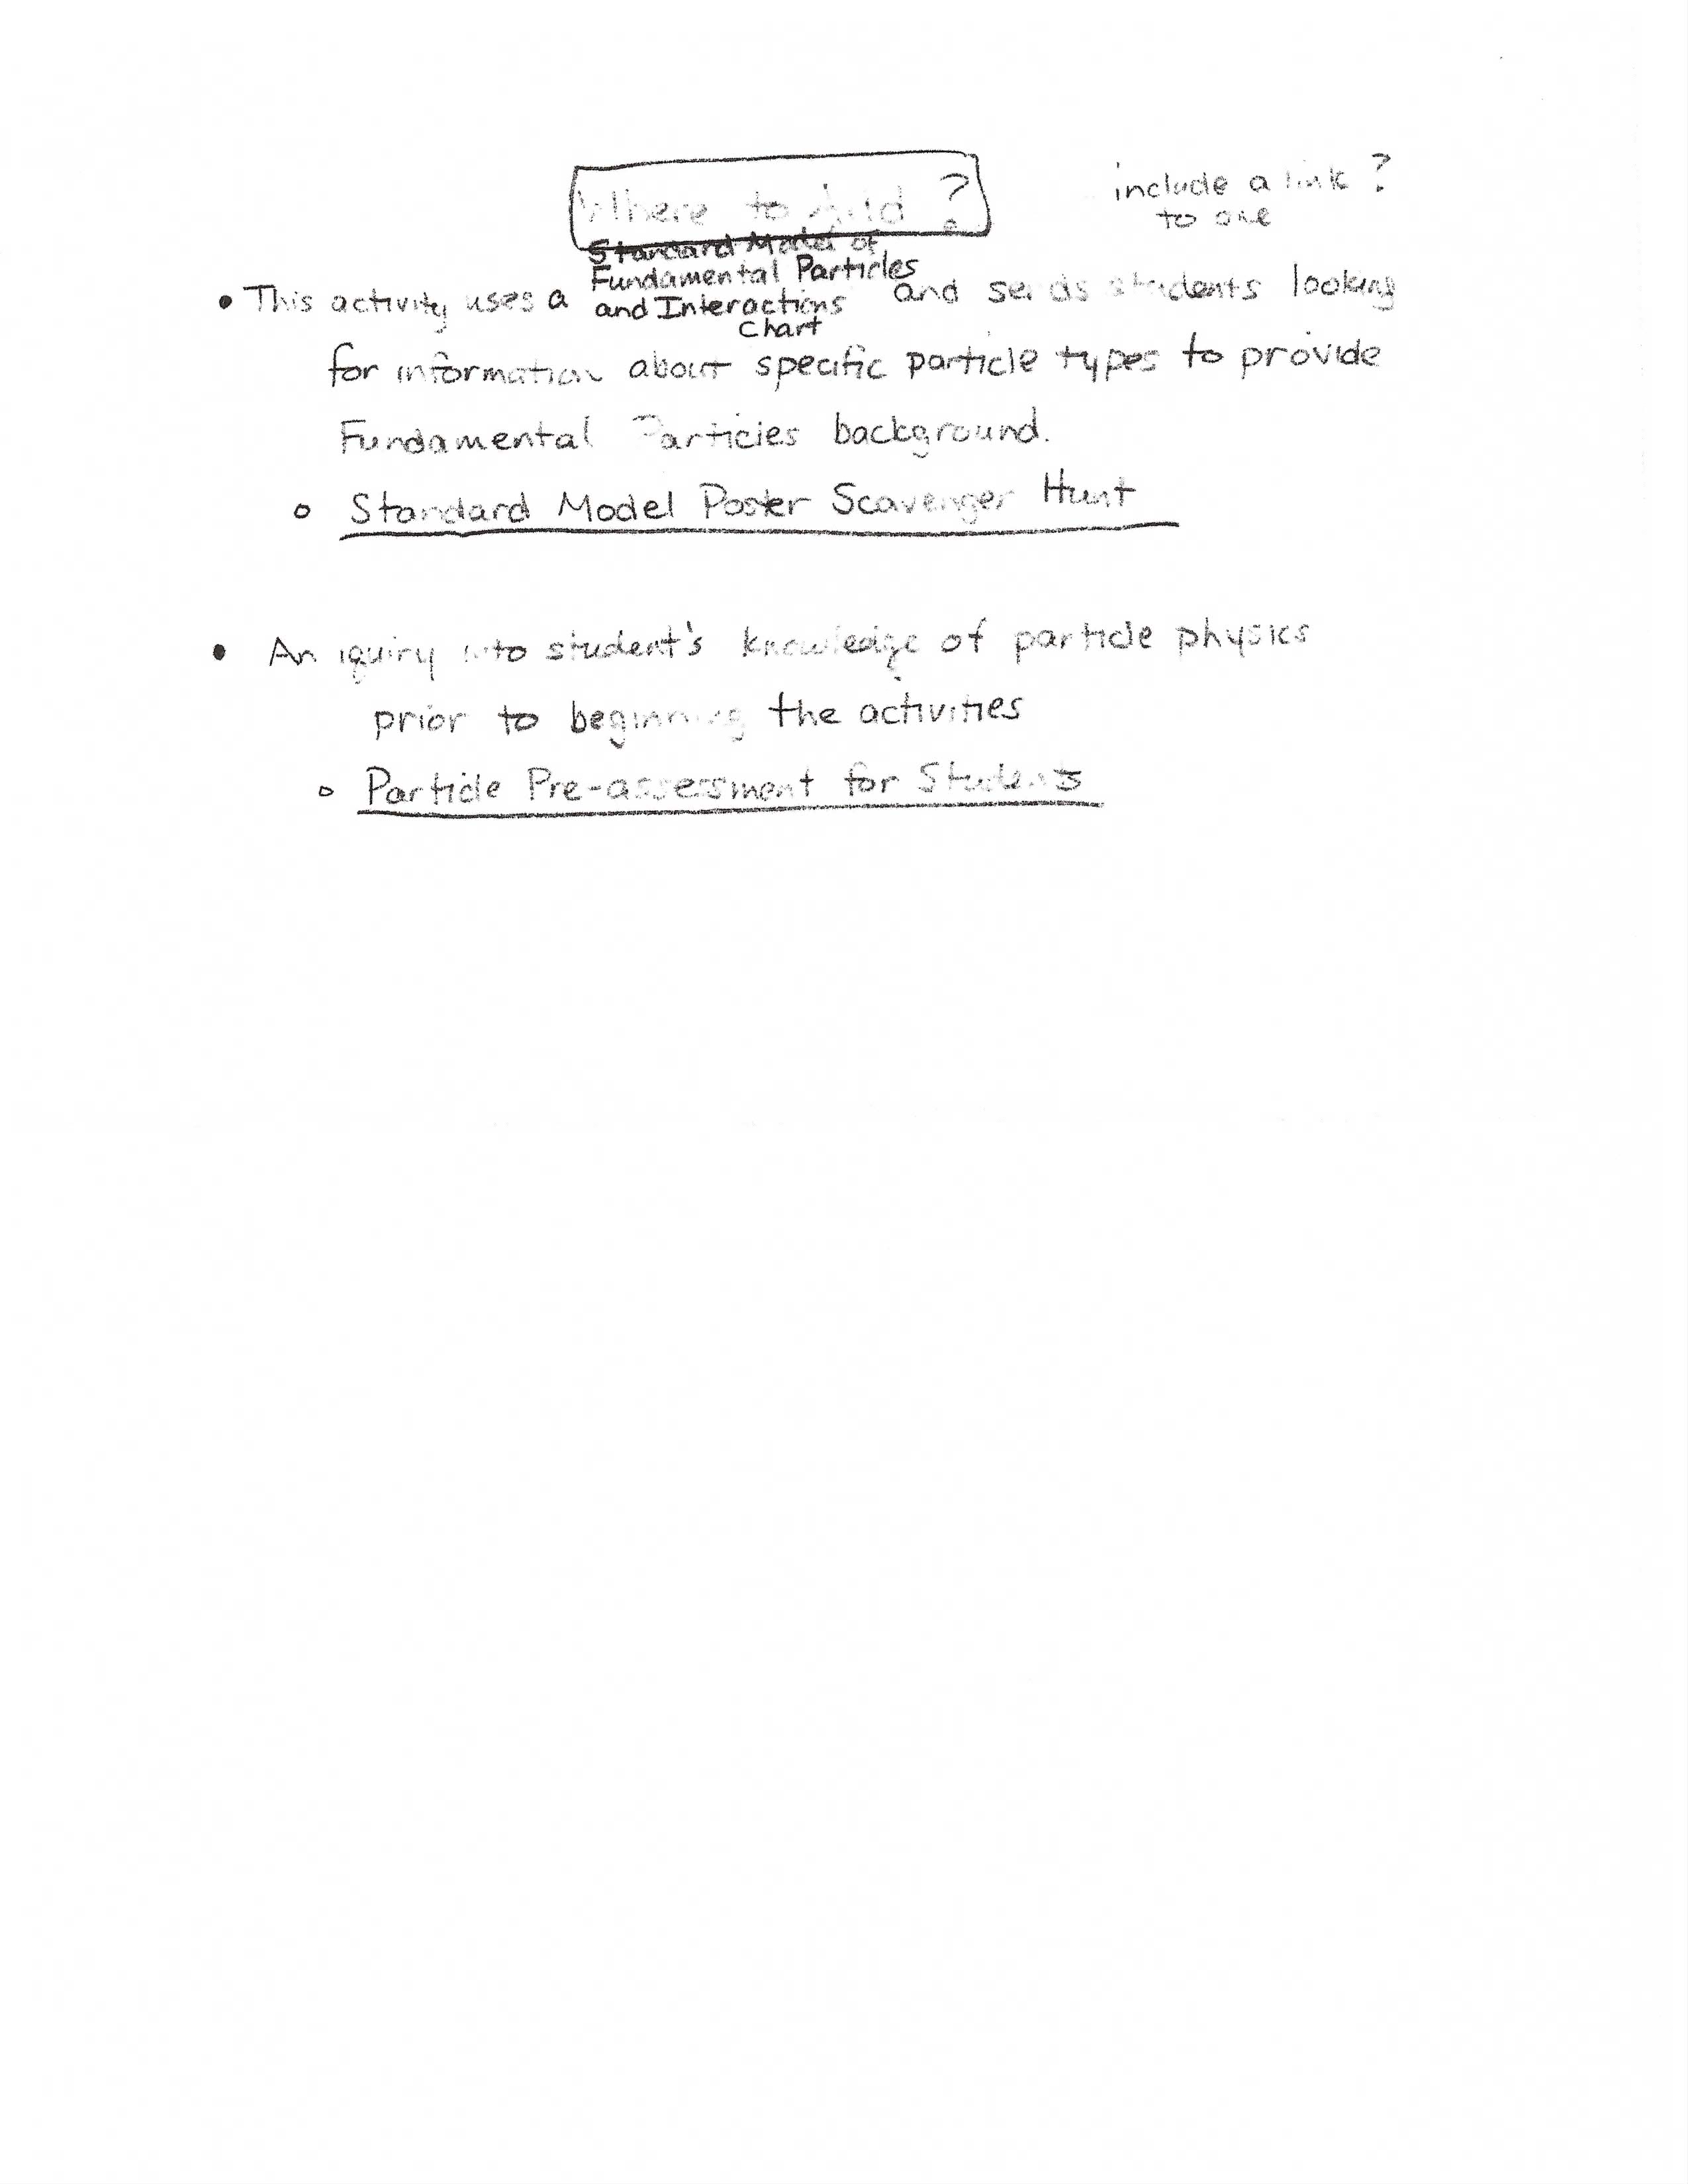 Where to Add ?
include a link ?
to one
Standard Model of
Fundamental Particles
• This activity uses a and Interactions and sends students looking
Chart
for information about specific particle types to provide
Fundamental Particles background.
o Standard Model Poster Scavenger Hunt
• An iquiry into student's knowledge of particle physics
prior to beginning the activities
o Particle Pre-assessment for Students